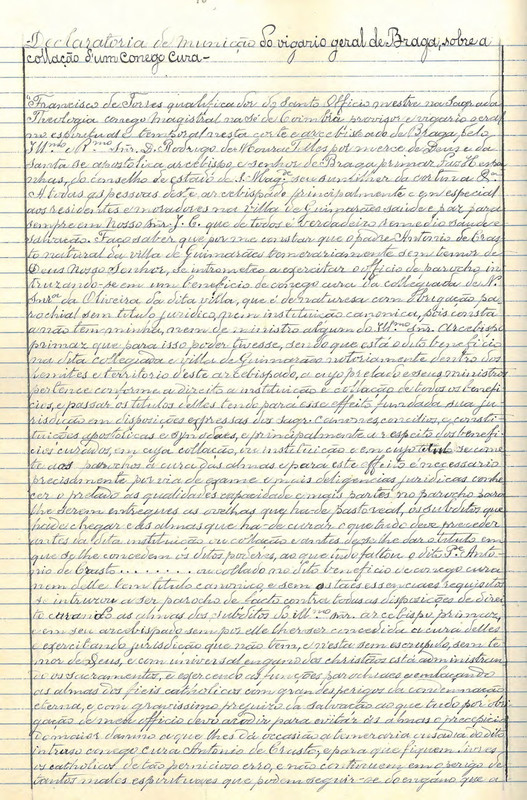 Declaratoria de munição do vigario geral de Braga, sobre a
collação d'um conego cura –
"Francisco de Torres qualificador do Santo Officio mestre na Sagrada
Theologia conego magistral na Sé de Coimbra provisor e vigario geral
no espiritual e temporal nesta corte e arcebispado de Braga, pelo
Illmo e Rmo Snr. D. Rodrigo de Moura Telles por merce de Deus e da
Santa Sé apostolica arcebispo e senhor de Braga primaz das Hespa
nhas, do conselho de estado de S. Magde seu sumilher da cortina &ª
A todas as pessoas deste arcebispado principalmente e em especial
aos residentes e moradores na villa de Guimarães saude e paz para
sempre em Nosso Snr. J. C. que de todos é verdadeiro remedio saude e
salvação. Faço saber que por me constar que o padre Antonio de Cras
to natural da villa de Guimarães temerariamente sem temor de
Deus Nosso Senhor, se intrometteo a exercitar o officio de parocho in
truzando-se em um beneficio de conego cura da collegiada de N.
Snra da Oliveira da dita villa, que é de naturesa com obrigação pa
rochial sem titulo juridico, nem instituição canonica, pois consta
a não tem minha, nem de ministro algum do Illmo snr. Arcebispo
primaz que para isso poder tivesse, sendo que está o dito beneficio
na dita collegiada e villa de Guimarães notoriamente dentro dos
limites e territorio d'este arcebispado, a cujo prelado e seus ministros
pertence conforme a direito a instituição e collação de todos os benefi
cios, e passar os titulos d'elles tendo para esse effeito fundada sua ju
risdição em disposições expressas dos sagr. canones, concilios, e consti
tuições apostolicas e synodaes, e principalmente a respeito dos benefi
cios curados, em cuja collação, ou instituição se come
te aos parochos a cura das almas e para este effeito é necessario
precisamente por via de exame e mais deligencias juridicas conhe
cer o prelado as qualidades capacidade e mais partes no parocho para
lhe serem entregues as ovelhas que ha-de pastorear, os subditos que
ha de chegar e as almas que ha-de curar o que tudo deve preceder
antes da dita instituição ou collação e antes de se lhe dar o titulo em
que se lhe concedem os ditos poderes, ao que tudo faltou o dito Pe Anto
nio de Crasto . . . . . . . . ou collado no dito beneficio de conego cura
nem delle tem titulo canonico, e sem os taes essenciaes requisitos
se intruzou a ser parocho de facto contra todas as disposições de direi
to curando as almas dos subditos do Illmo snr. arcebispo primaz,
e em seu arcebispado sem por elle lhe ser concedida a cura delles
e exercitando jurisdição que não tem, e nesta sem escrupulo, sem te
mor de Deus, e com universal engano dos christãos está administran
do os sacramentos, e exercendo as funções parochiaes e enlaçando
as almas dos fieis catholicos com grandes perigos da condemnação
eterna, e com gravissimo prejuizo da salvação ao que tudo por obri
gação de meu officio devo acodir para evitar ás almas o precepicio
do maior damno a que lhes dá occasião a temeraria ousadia do dito
intruso conego cura Antonio de Crasto, e para que fiquem livres
os catholicos, de tão pernicioso erro, e não continuem em o perigo de
tantos males espirituaes que podem seguir-se do engano que a